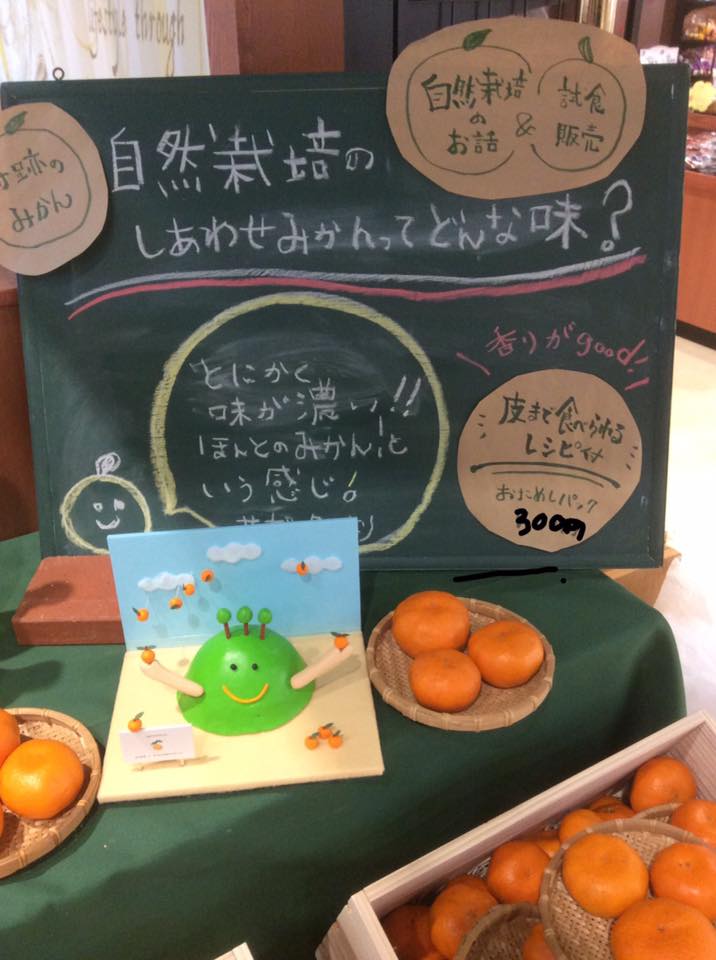 自然栽培の
お話
&
試食
販売
みかん
自然栽培の
しあわせみかんってどんな味?
香りがgood!
とにかく
味が濃い!!
ほんとのみかん!と
いう感じ!
皮まで食べられる
レシピ付
おためしパック
300円